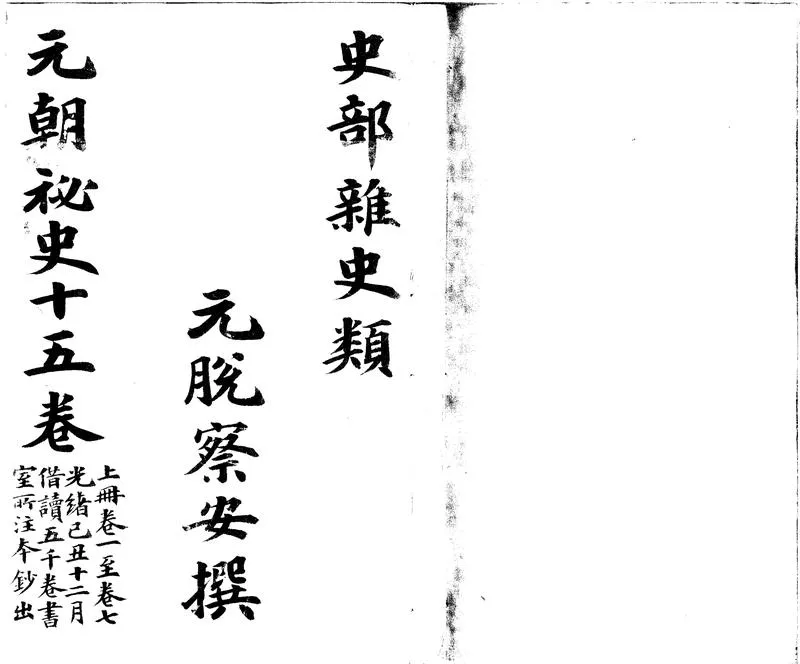 史部雜史類
元脫察安撰
元朝祕史十五卷
上冊卷一至卷七
光緒己丑十二月
借讀五千卷書
室所注本鈔出